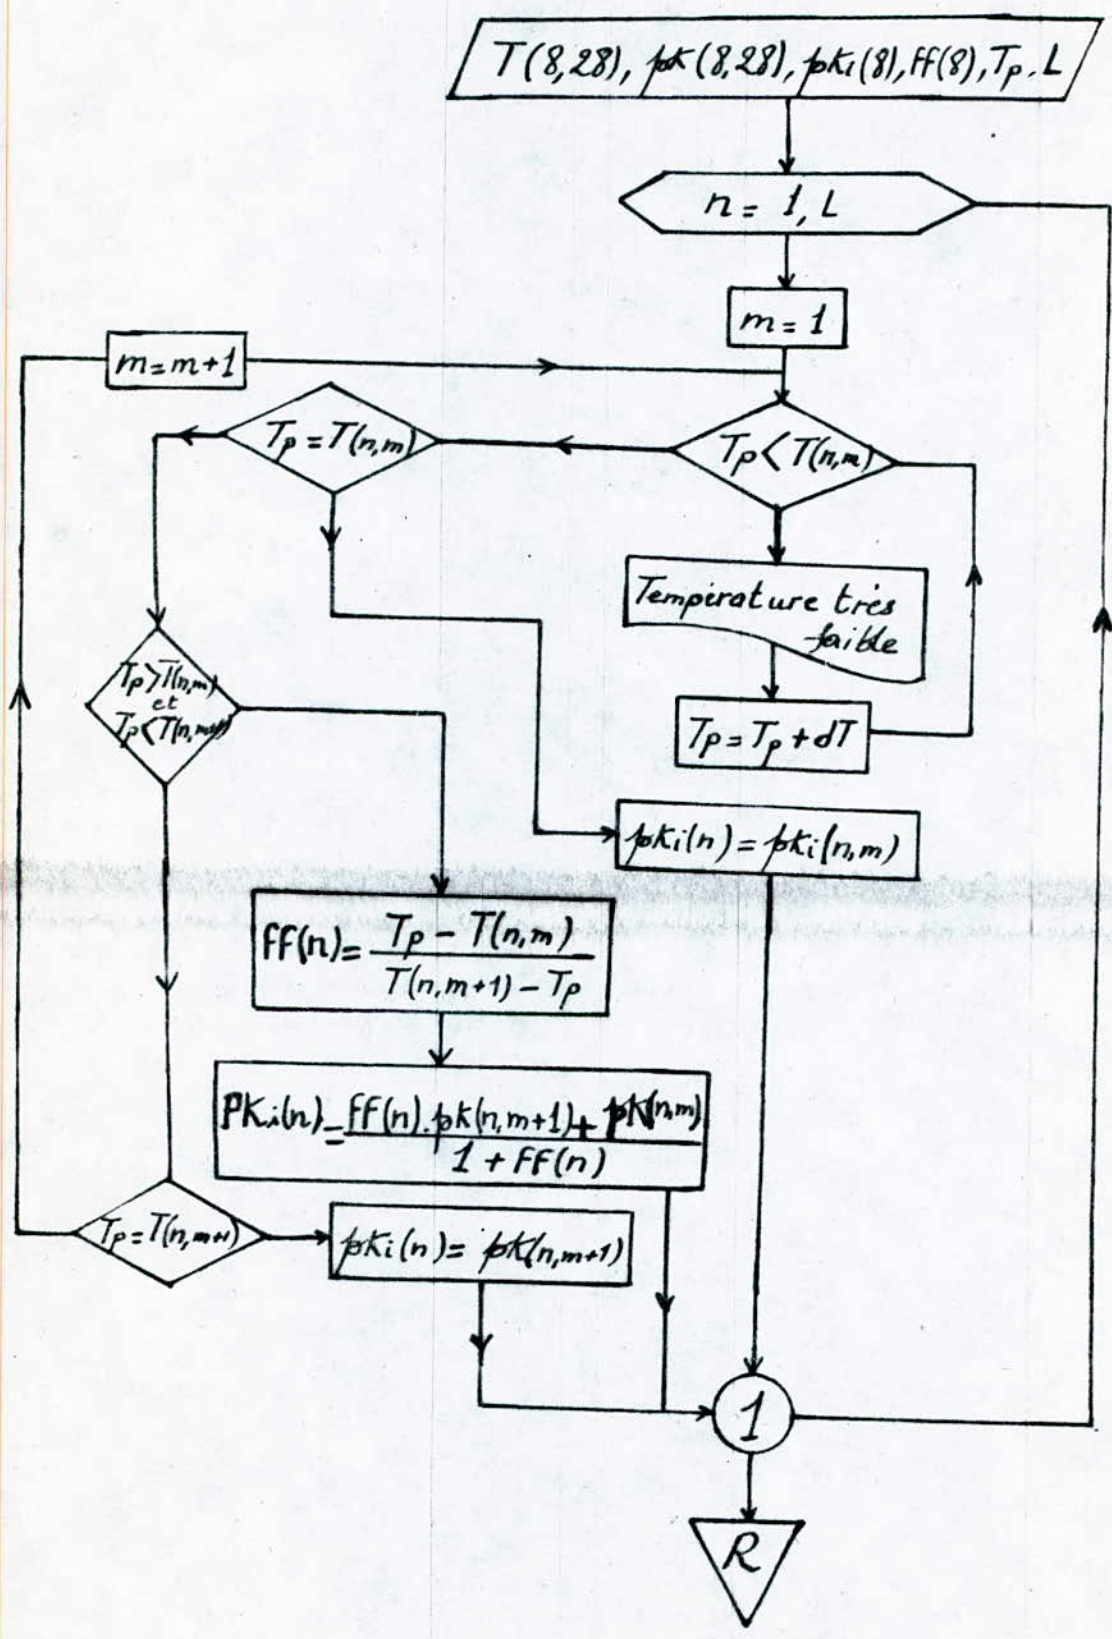 T(8,28), pk(8,28), pki(8), FF(8), Tp, L
n = 1, L
m = 1
m = m+1
Tp = T(n,m)
Tp < T(n,m)
Température très
faible
Tp > T(n,m)
et
Tp < T(n,m+1)
Tp = Tp + dT
pki(n) = pki(n,m)
FF(n) = Tp - T(n,m)
T(n,m+1) - Tp
PKi(n) = FF(n).pk(n,m+1) + pK(n,m)
1 + FF(n)
Tp = T(n,m+1)
pki(n) = pK(n,m+1)
1
R